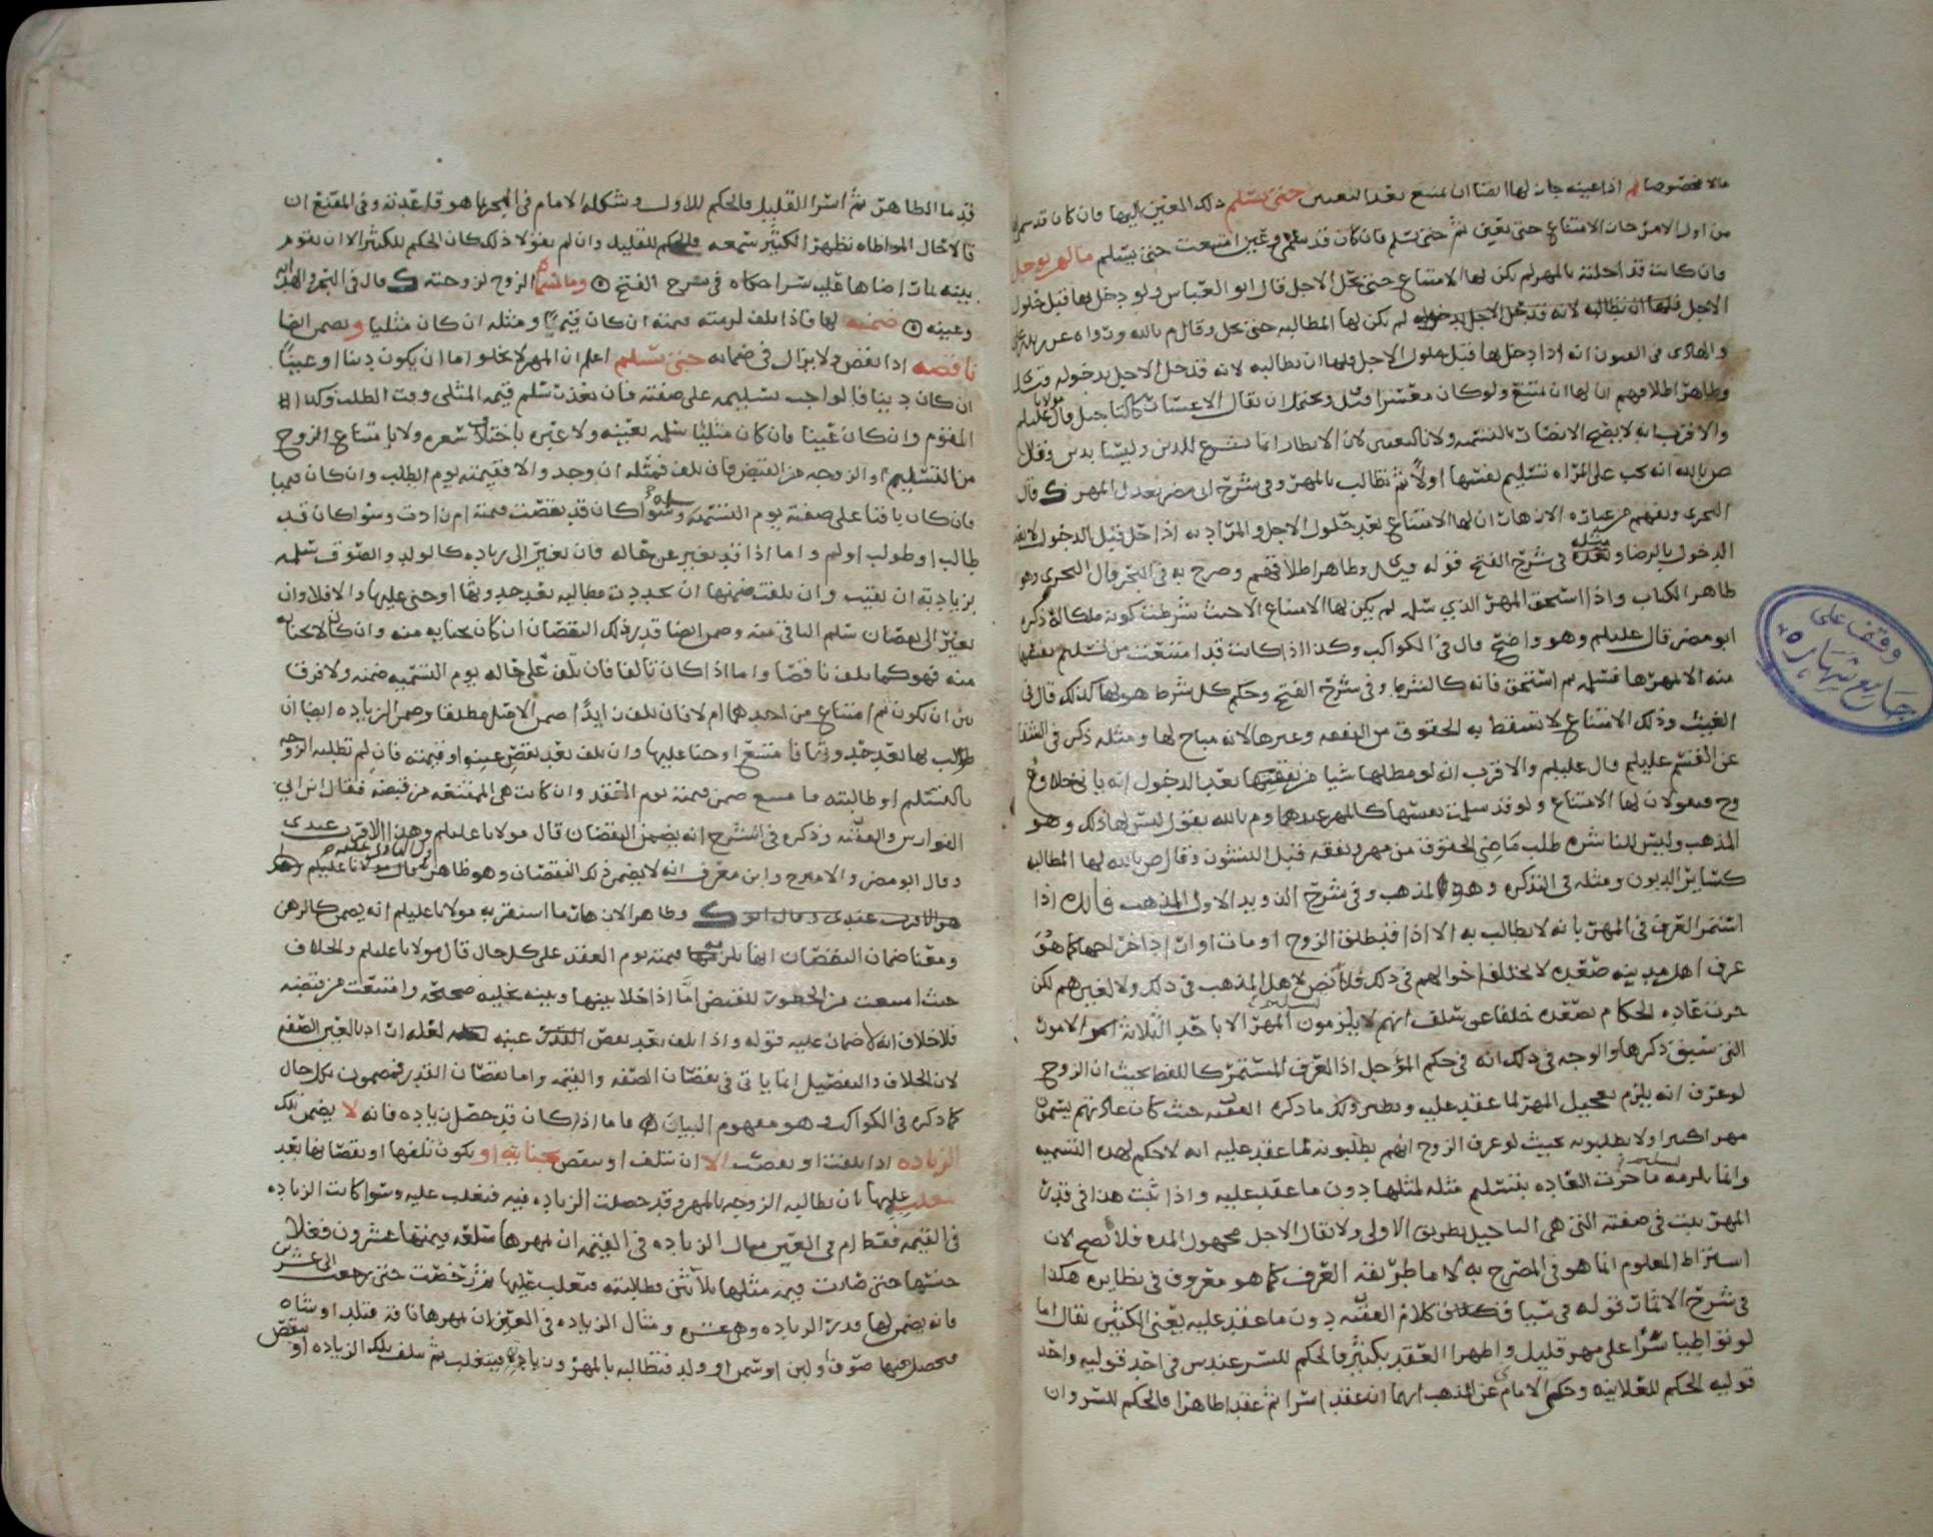 مالا مخصوصا ثم اذا عينه جاز لها ايضا ان تمتنع بعد التعيين حتى يسلم ذلك المعين اليها فان كان قد سمى
من اول الامر جاز الامتناع حتى يعين ثم حتى يسلم فان كان قد سمى وعين امتنعت حتى يسلم ما لم يوجل
فان كانت قد اجلته بالمهر لم يكن لها الامتناع حتى يحل الاجل قال ابو العباس ولو دخل بها قبل حلول
الاجل فلها ان تطالبه لانه قد حل الاجل بدخوله لم يكن لها المطالبه حتى يحل وقال م بالله ورواه عن
والهادى فى الفنون انه اذا دخل بها قبل حلول الاجل فلها ان تطالبه لانه قد حل الاجل بدخوله
وظاهر اطلاقهم ان لها ان تمتنع ولو كان معسرا قيل ويحتمل ان يقال الاعسار كالتاجيل قال مولانا عليلم
والاقرب انه لا يصح الانظار بالتسميه ولا بالتعيين لان الانظار انما يشرع للدين وليسا بدين وقال
ص بالله انه يجب على المراه تسليم نفسها اولا ثم تطالب بالمهر وفى شرح ابى مضر بعدل المهر ك قال
النجرى ويفهم من عباره الازهار ان لها الامتناع بعد حلول الاجل والمراد به اذا حل قبل الدخول لا بعد
الدخول بالرضا ومثله فى شرح الفتح قوله قيل وظاهر اطلاقهم وصرح به فى البحر قال النجرى وهو
ظاهر الكتاب واذا استحق المهر الذي سلم لم يكن لها الامتناع الا حيث شرطت كونه ملكا له ذكره
ابو مضر قال عليلم وهو واضح قال فى الكواكب وكذا اذا كانت قد امتنعت من تسليم نفسها
منه الا بمهرها فسلمه ثم استحق فانه كالشرط وفى شرح الفتح وحكم كل شرط هو لها كذلك قال فى
الغيث وذلك الامتناع لا تسقط به الحقوق من النفقه وغيرها لانه مباح لها ومثله ذكره فى الشفا
عن القسم عليلم قال عليلم والاقرب انه لو مطلها شيا من نفقتها بعد الدخول انه ياتى خلاف
وح فيقولان لها الامتناع ولو قد سلمت نفسها كالمهر عندهما وم بالله يقول ليس لها ذلك وهو
المذهب وليس للناشزه طلب ماضى الحقوق من مهر ونفقه قبل النشوز وقال ص بالله لها المطالبه
كسائر الديون ومثله فى التذكره وهو المذهب وفى شرح الذويد الاول المذهب فائده اذا
استمر العرف فى المهر بانه لا يطالب به الا اذا طلق الزوج او مات او اراد اخراجها كما هو
عرف اهل مدينه صعده لا تختلف احوالهم فى ذلك فلا نص لاهل المذهب فى ذلك ولا لغيرهم لكن
جرت عاده الحكام بصعده خلفا عن سلف انهم لا يلزمون تسليم المهر الا باحد الثلاثه الامور
التى سبق ذكرها والوجه فى ذلك انه فى حكم المؤجل اذ العرف المستمر كاللفظ بحيث ان الزوج
لو عرف انه يلزم تعجيل المهر لما عقد عليه ونظير ذلك ما ذكره الفقيه حيث كان عادتهم يسمون
مهرا كثيرا ولا يطلبونه بحيث لو عرف الزوج انهم يطلبونه لما عقد عليه انه لا حكم لهذه التسميه
وانما يلزمه تسليم ما جرت العاده بتسليم مثله لمثلها دون ما عقد عليه واذا ثبت هذا فى قدر
المهر ثبت فى صفته التى هى التاجيل بطريق الاولى ولا يقال الاجل مجهول المده فلا يصح لان
اشتراط المعلوم انما هو فى المصرح به لا ما طريقه العرف كما هو معروف فى نظايره هكذا
فى شرح الاثمار قوله فى سياق كلام الفقيه دون ما عقد عليه يعنى الكثير يقال اما
لو تواطيا سرا على مهر قليل واظهرا العقد بكثير فالحكم للسر عندش فى احد قوليه واحد
قوليه الحكم للعلانيه وحكى الامام ى عن المذهب انهما ان عقدا سرا ثم عقدا ظاهرا فالحكم للسر وان
وقف على
جامع شهاره
قدما الظاهر ثم اسرا القليل فالحكم للاول وشكله الامام فى البحر بما هو قاعدته وفى المقنع ان
قالا حال المواطاه نظهر الكثير سمعه فالحكم للقليل وان لم يقولا ذلك كان الحكم للكثير الا ان تقوم
بينه بمات اضاها قليل سرا حكاه فى شرح الفتح وما سماه الزوج لزوجته ك قال فى البحر والهدايه
وعينه ضمنه لها فاذا تلف لزمته قيمته ان كان قيميا ومثله ان كان مثليا ويضمن ايضا
ناقصه اذا نقص ولا يزال فى ضمانه حتى تسلم اعلم ان المهر لا يخلو اما ان يكون دينا او عينا
ان كان دينا فالواجب تسليمه على صفته فان تعذر تسلم قيمه المثلى وقت الطلب وكذا
المقوم وان كان عينا فان كان مثليا سلمه بعينه ولا عبره باختلاف سعره ولا بامتناع الزوج
من التسليم او الزوجه من القبض فان تلف فمثله ان وجد والا فقيمته يوم الطلب وان كان قيميا
فان كان باقيا على صفته يوم التسميه سلمه وسوا كان قد نقصت قيمته ام زادت وسوا كان قد
طالب او طولب او لم واما اذا قد تغير عن حاله فان تغير الى زياده كالولد والصوف سلمه
بزيادته ان بقيت وان تلفت ضمنها ان تجددت مطالبه بعد حدوثها او جنى عليها والا فلا وان
تغير الى نقصان سلم الباقى منه وضمن ايضا قدر ذلك النقصان ان كان بجنايه منه وان كان لا بجنايه
منه فهو كما تلف ناقصا واما اذا كان تالفا فان تلف على حاله يوم التسميه ضمنه ولا فرق
بين ان يكون ثم امتناع من احدهما ام لا فان تلف زايدا ضمن الاصل مطلقا وضمن الزياده ايضا ان
طولب بها بعد حدوثها فامتنع او جنا عليها وان تلف بعد نقص عينه او قيمته فان لم تطلبه الزوجه
بالتسليم او طالبته فامتنع ضمن قيمته يوم العقد وان كانت هى الممتنعه من قبضه فقال ابن ابي
الفوارس والفقيه وذكره فى الشرح انه يضمن النقصان قال مولانا عليلم وهذا الاقرب عندى
وقال ابو مضر والامير ح وابن معرف انه لا يضمن ذلك النقصان وهو ظاهر قال مولانا عليلم
هو الاقرب عندى وقال ك وظاهر الازهار ما استقر به مولانا عليلم انه يضمن كالرهن
ومعنا ضمان النقصان انها يلزمه قيمته يوم العقد على كل حال قال مولانا عليلم والخلاف
حيث امتنعت من الحضور للقبض اما اذا خلا بينها وبينه تخليه صحيحه وامتنعت من قبضه
فلا خلاف انه لا ضمان عليه قوله واذا تلف بعد نقص عينه لعله اراد بالعين الصفه
لان الخلاف والتفصيل انما ياتى فى نقصان الصفه والقيمه واما نقصان القدر فمضمون بكل حال
كما ذكره فى الكواكب وهو مفهوم البيان فاما اذا كان قد حصل زياده فانه لا يضمن تلك
الزياده اذا تلفت او نقصت الا ان تتلف او تنقص بجنايته او يكون تلفها او نقصانها بعد
تغلب عليها بان تطالبه الزوجه بالمهر وقد حصلت الزياده فيه فتغلب عليه وسوا كانت الزياده
فى القيمه فقط ام فى العين مثال الزياده فى القيمه ان يمهرها سلعه قيمتها عشرون فغلا
جنسها حتى صارت قيمه مثلها ثلاثين فطالبته فتغلب عليها ثم رخصت حتى رجعت الى عشرين
فانه يضمن لها قدر الزياده وهى عشره ومثال الزياده فى العين ان يمهرها ناقه فتلد او شاه
فحصل فيها صوف او لبن او سمن او ولد فتطالبه بالمهر وزيادته فيتغلب ثم تتلف تلك الزياده او تنقص